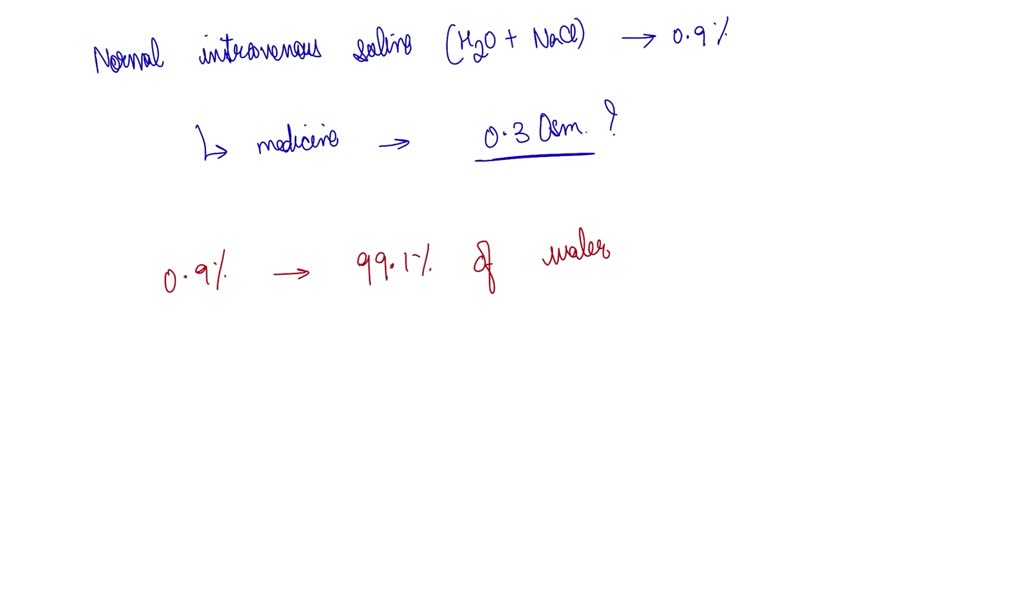 Normal intravenous saline (H₂O + NaCl) → 0.9%
↳ medicine → 0.3 Osm. ?
0.9% → 99.1% of water